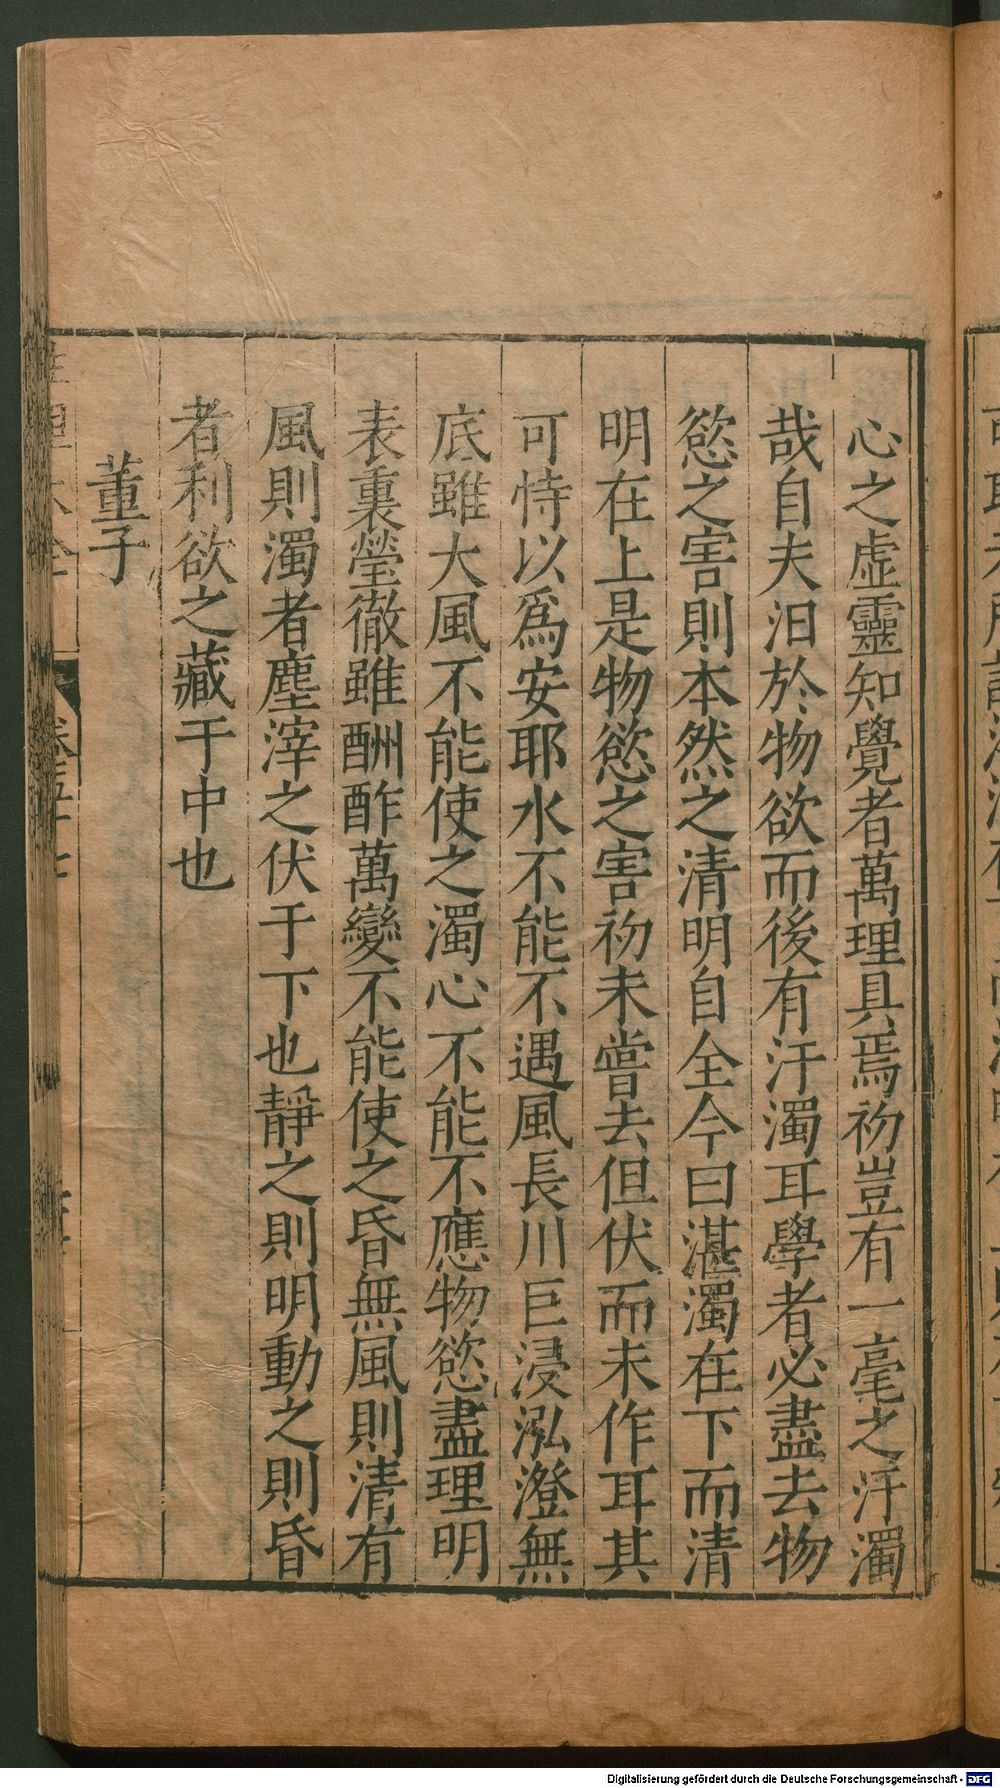 心之虛靈知覺者萬理具焉初豈有一毫之汙濁
哉自夫汩於物欲而後有汙濁耳學者必盡去物
慾之害則本然之清明自全今曰湛濁在下而清
明在上是物慾之害初未嘗去但伏而未作耳其
可恃以爲安耶水不能不遇風長川巨浸泓澄無
底雖大風不能使之濁心不能不應物慾盡理明
表裏瑩徹雖酬酢萬變不能使之昏無風則清有
風則濁者塵滓之伏于下也靜之則明動之則昏
者利欲之藏于中也
董子
Digitalisierung gefördert durch die Deutsche Forschungsgemeinschaft - DFG